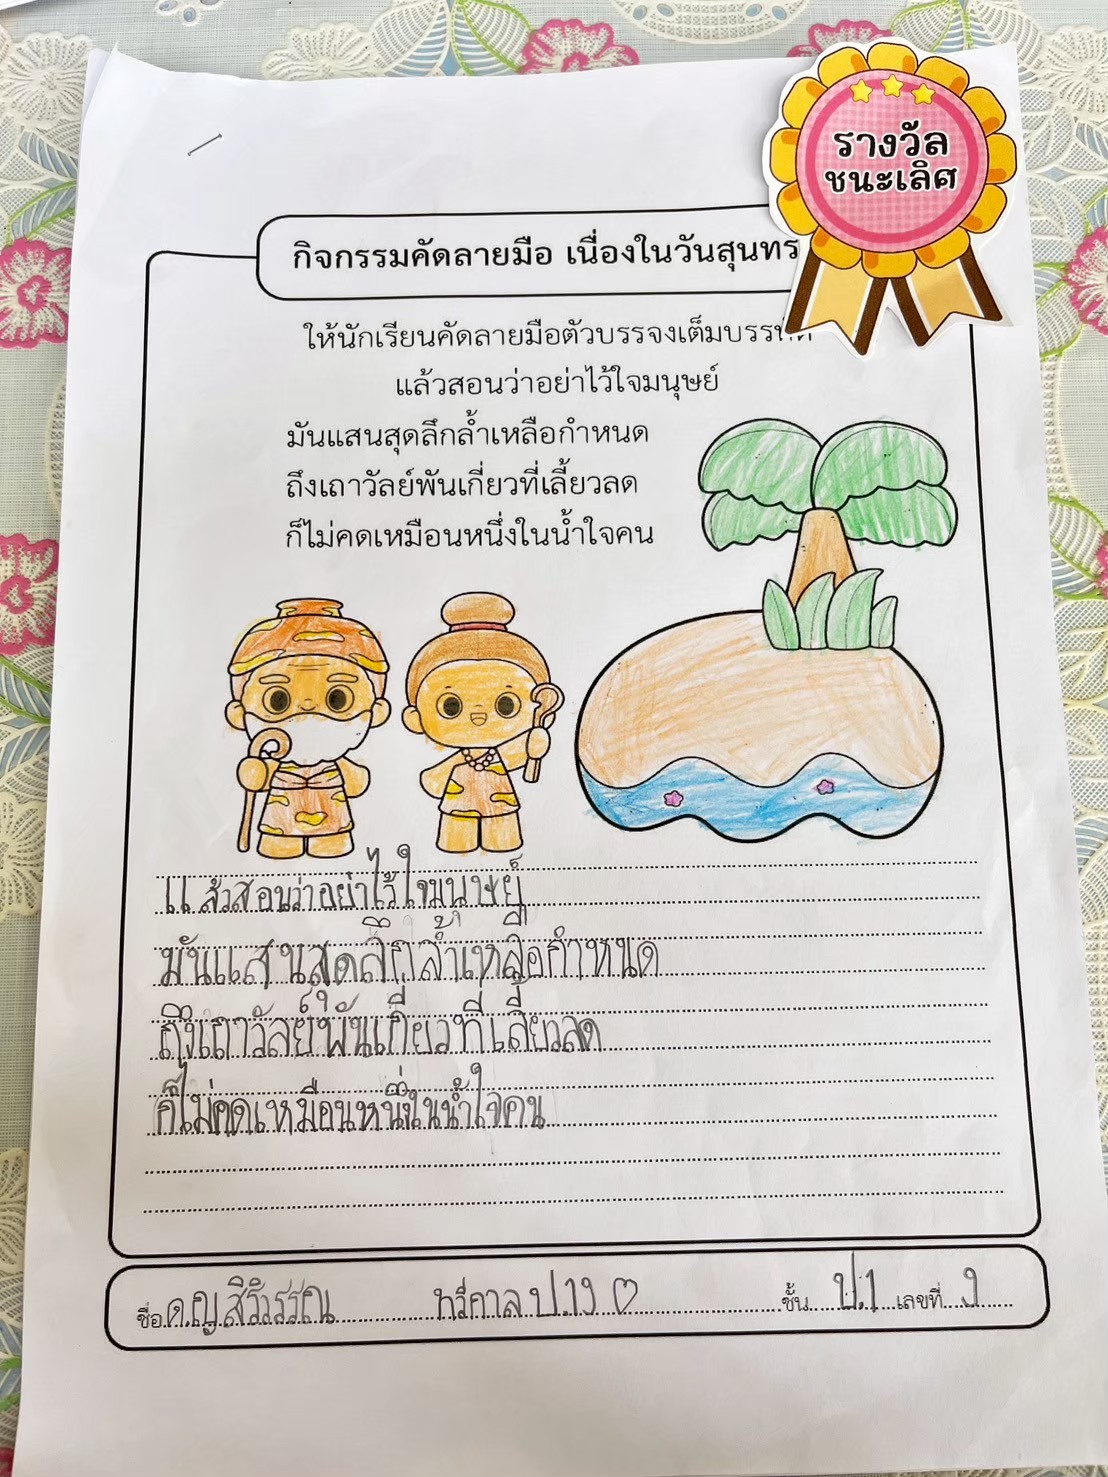 รางวัล
ชนะเลิศ
กิจกรรมคัดลายมือ เนื่องในวันสุนทร
ให้นักเรียนคัดลายมือตัวบรรจงเต็มบรรทัด
แล้วสอนว่าอย่าไว้ใจมนุษย์
มันแสนสุดลึกล้ำเหลือกำหนด
ถึงเถาวัลย์พันเกี่ยวที่เลี้ยวลด
ก็ไม่คดเหมือนหนึ่งในน้ำใจคน
แล้วสอนว่าอย่าไว้ใจมนุษย์
มันแสนสุดลึกล้ำเหลือกำหนด
ถึงเถาวัลย์พันเกี่ยวที่เลี้ยวลด
ก็ไม่คดเหมือนหนึ่งในน้ำใจคน
ชื่อ ด.ญ สิริวรรณ ชั้น ป.1 เลขที่